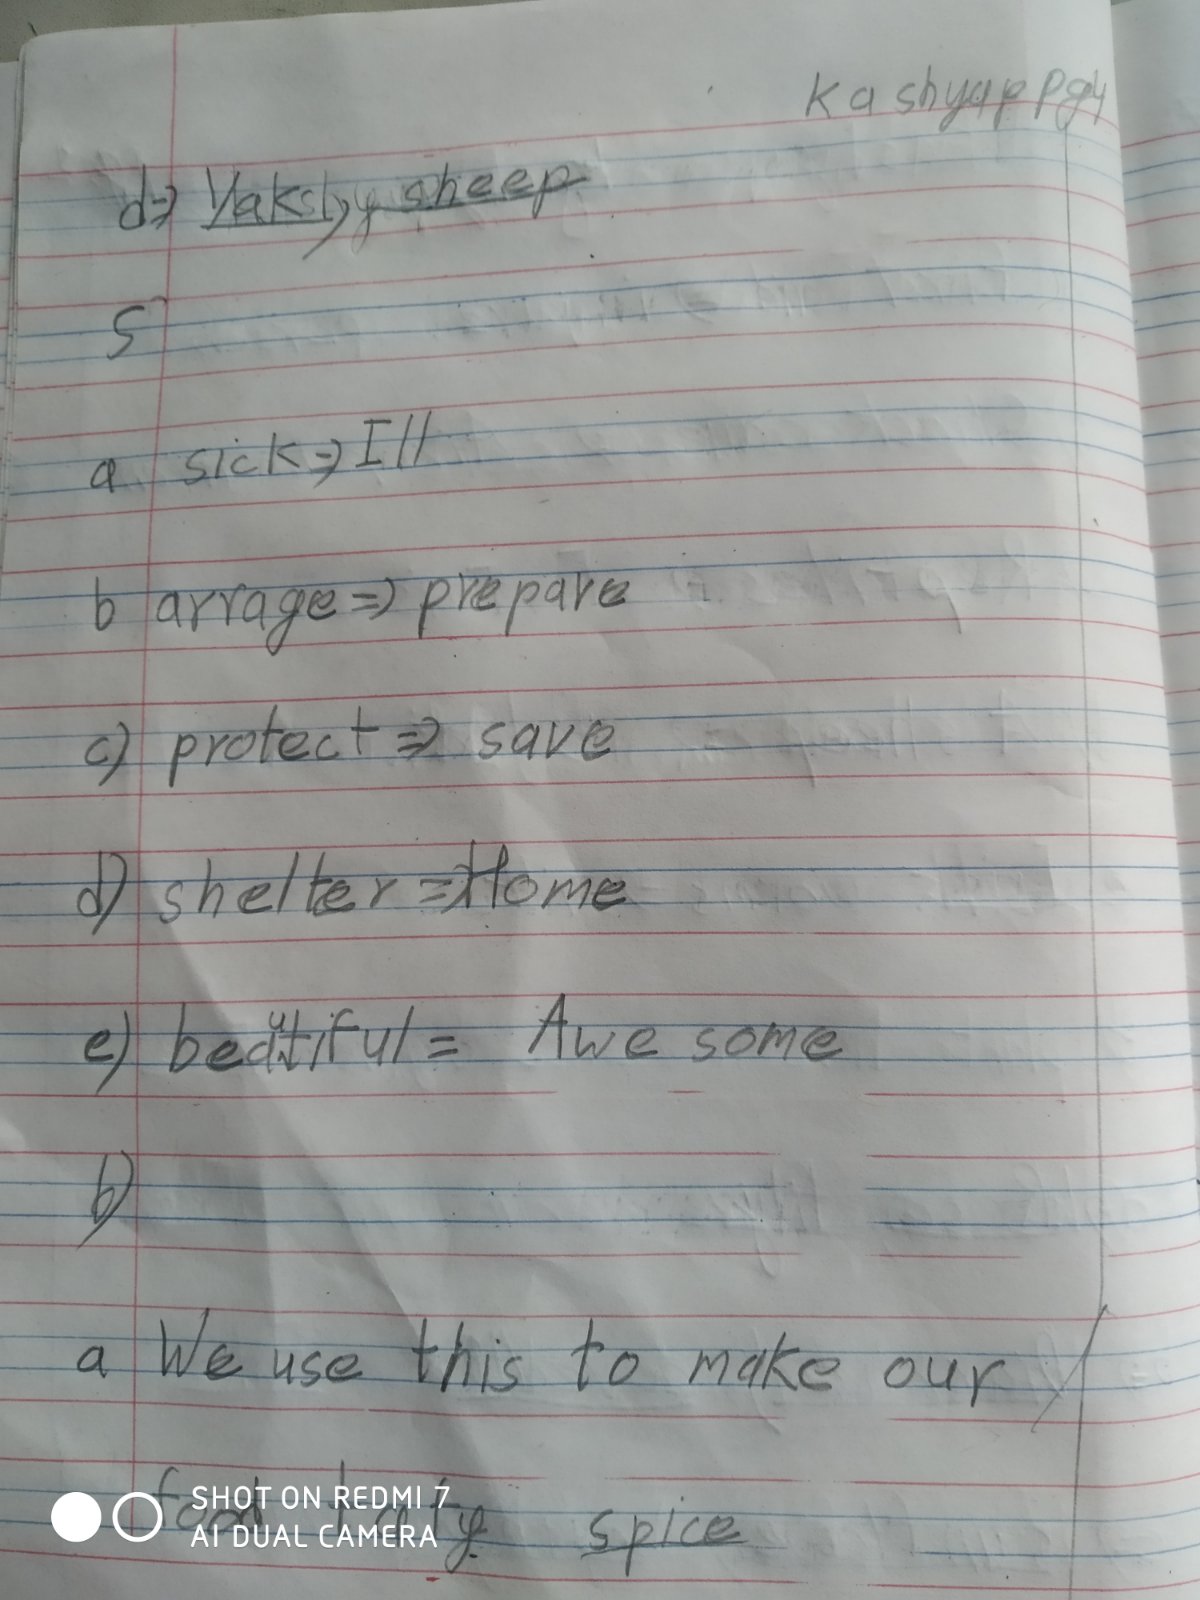 Kashyap Pg4
d⇒ Yaks, sheep
5
a sick ⇒ Ill
b arrage ⇒ prepare
c) protect ⇒ save
d) shelter ⇒ Home
e) beautiful = Awesome
b)
a We use this to make our
food tasty spice
SHOT ON REDMI 7
AI DUAL CAMERA